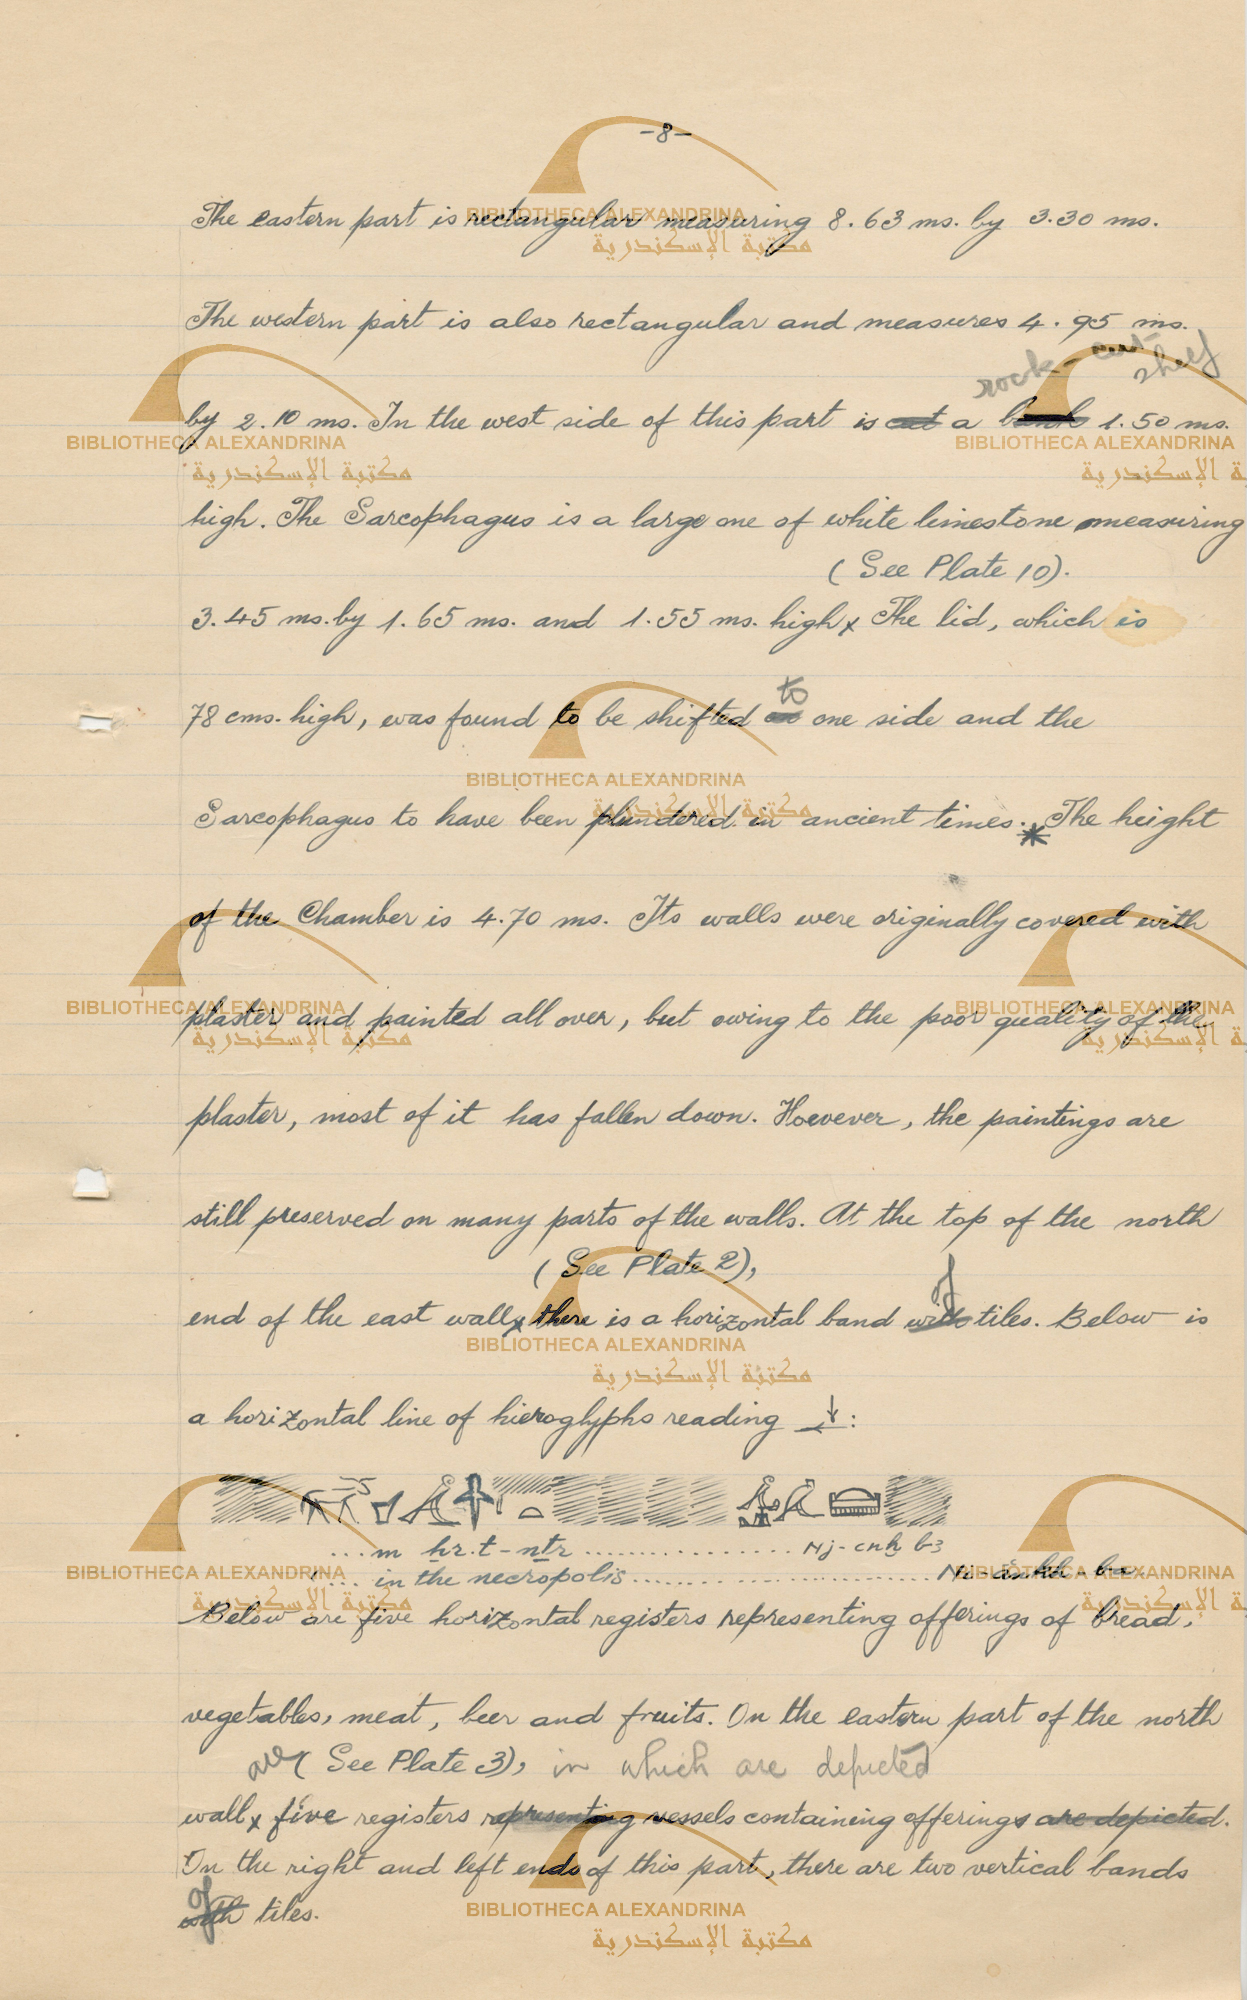 -8-
The eastern part is rectangular measuring 8.63 ms. by 3.30 ms.
The western part is also rectangular and measures 4.95 ms.
rock-cut shelf
by 2.10 ms. In the west side of this part is cut a bench 1.50 ms.
high. The Sarcophagus is a large one of white limestone measuring
(See Plate 10).
3.45 ms. by 1.65 ms. and 1.55 ms. high x The lid, which is
to
78 cms. high, was found to be shifted on one side and the
Sarcophagus to have been plundered in ancient times. * The height
of the Chamber is 4.70 ms. Its walls were originally covered with
plaster and painted all over, but owing to the poor quality of the
plaster, most of it has fallen down. However, the paintings are
still preserved on many parts of the walls. At the top of the north
(See Plate 2),
of
end of the east wall x there is a horizontal band with tiles. Below is
a horizontal line of hieroglyphs reading ↓←:
...m ẖr.t-nṯr ................. Nj-cnḫ b3
.... in the necropolis ........................... Ni-ankh-ba.
Below are five horizontal registers representing offerings of bread,
vegetables, meat, beer and fruits. On the eastern part of the north
are (See Plate 3), in which are depicted
wall x five registers representing vessels containing offerings are depicted.
On the right and left ends of this part, there are two vertical bands
of
with tiles.
BIBLIOTHECA ALEXANDRINA
مكتبة الإسكندرية